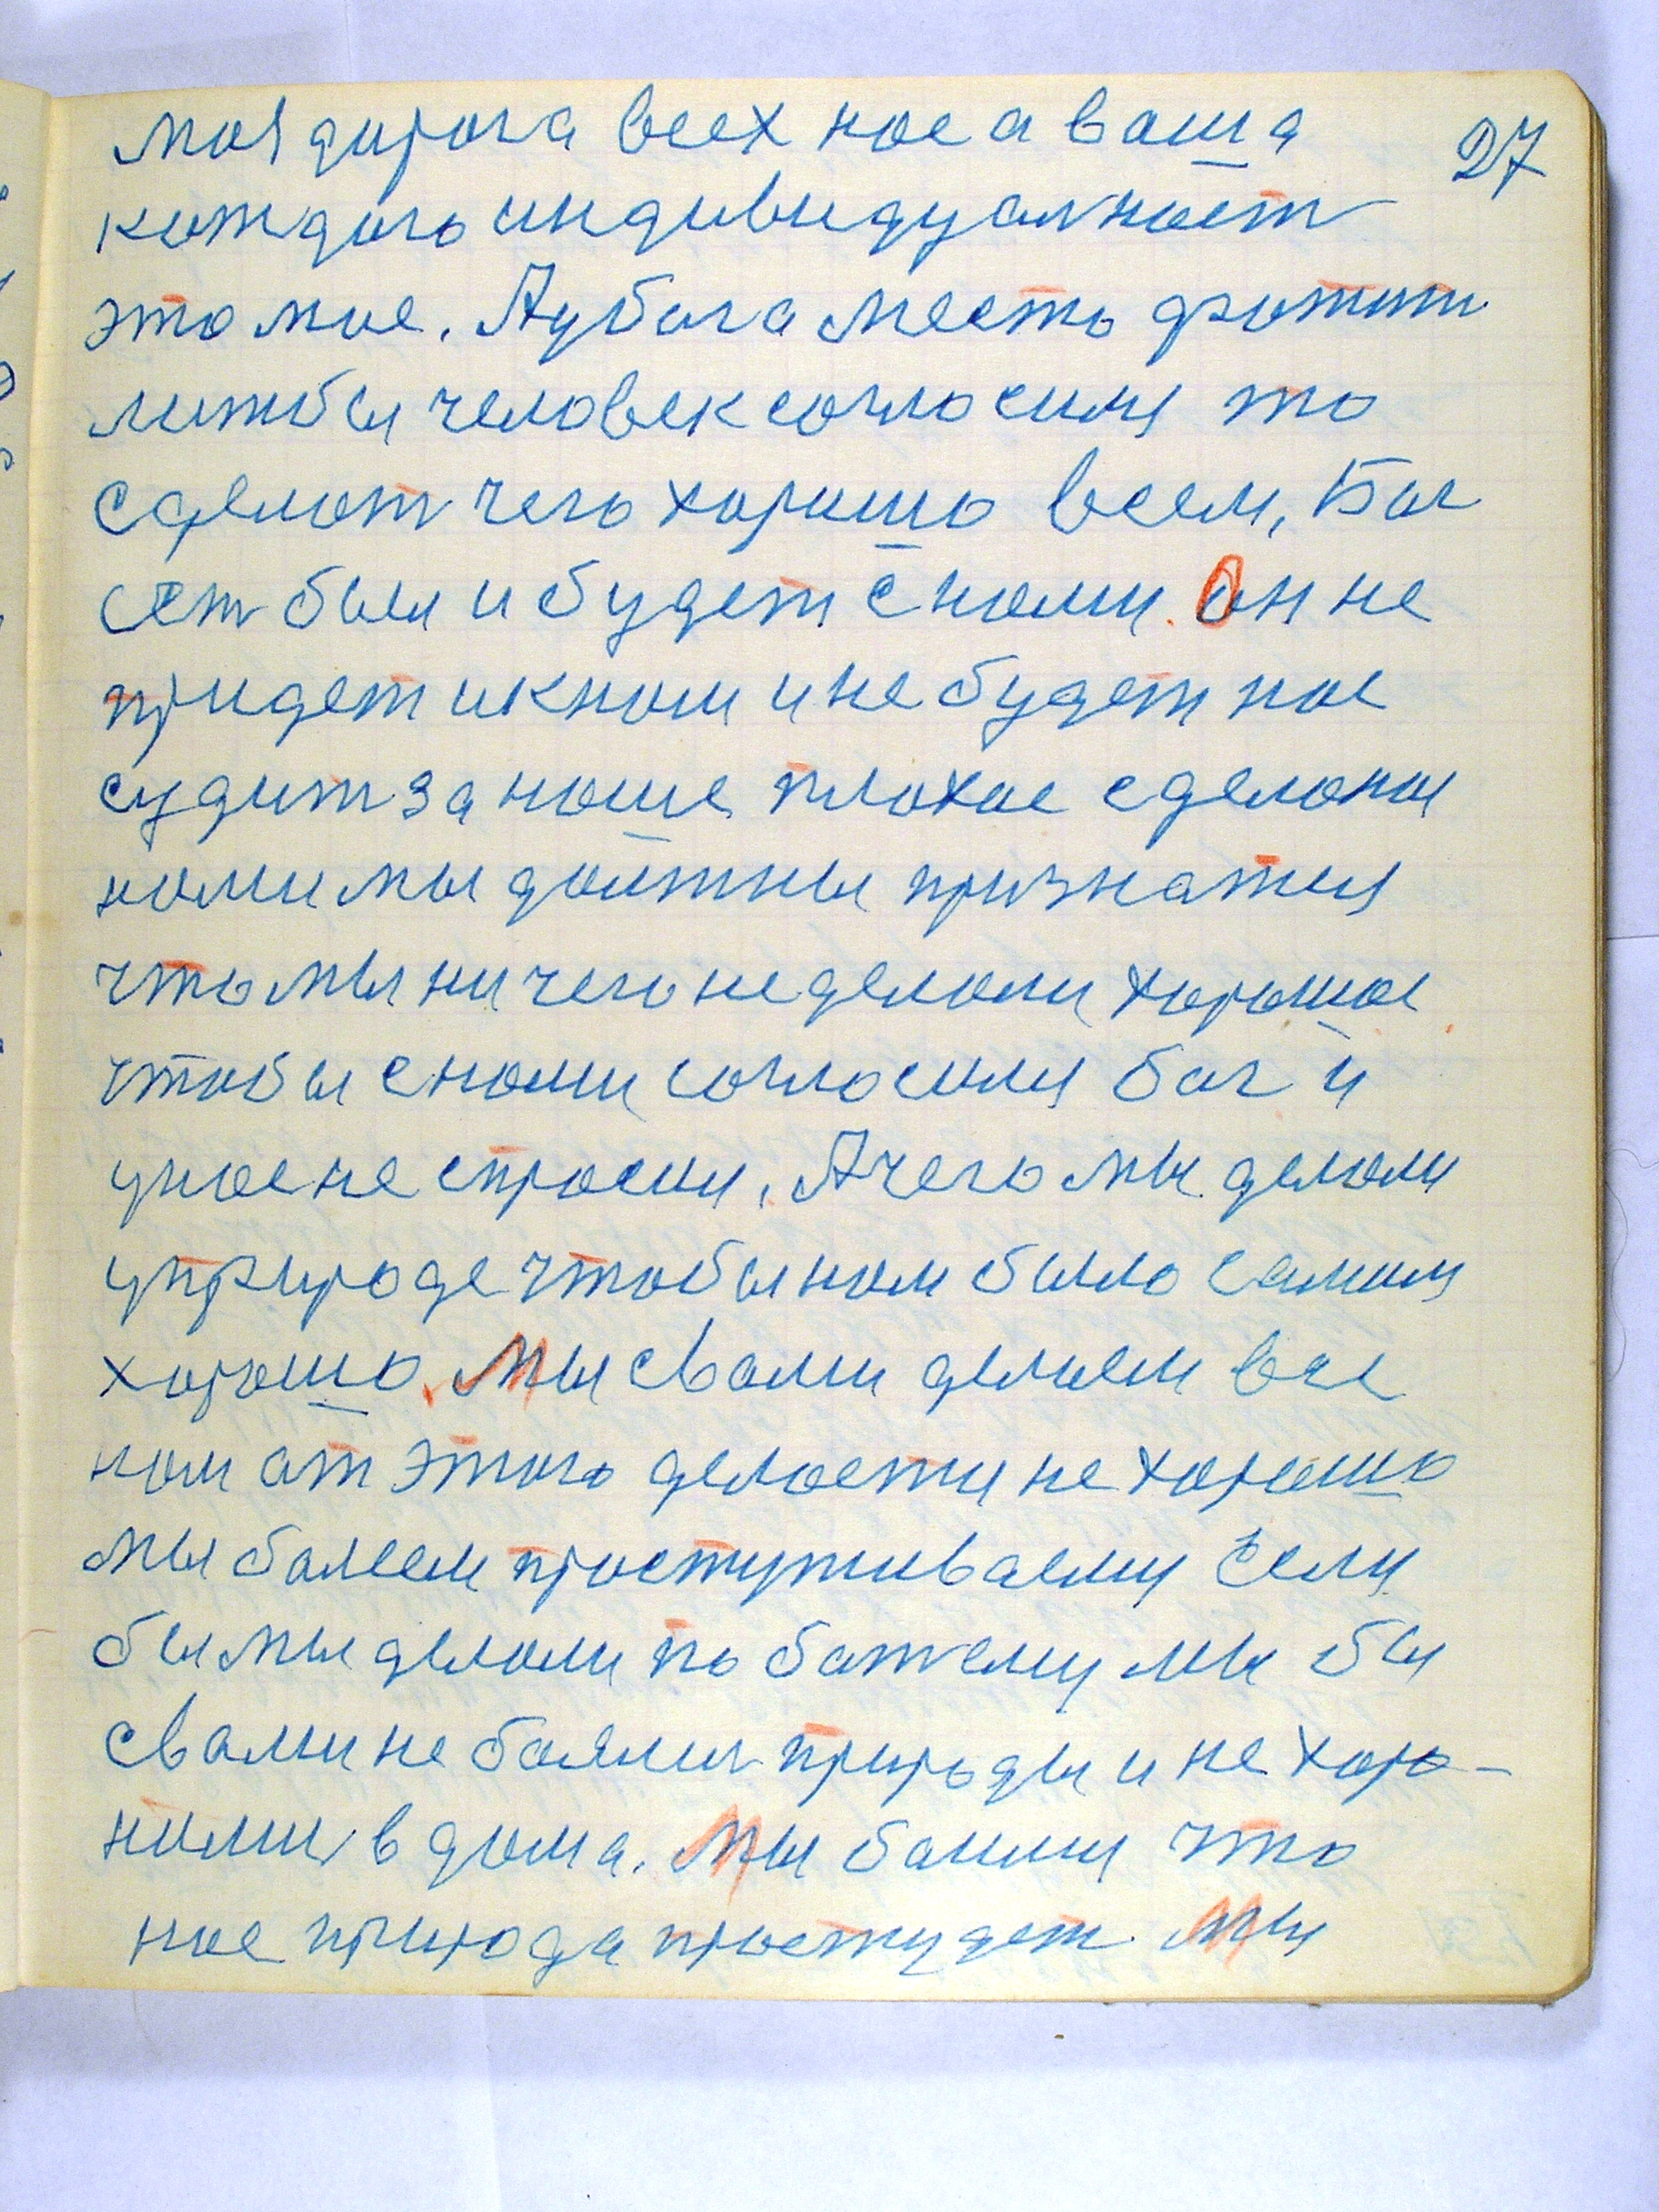 моя дорога всех нас а ваша 27
каждого индивидуалност
это мое. А у бога месть
лижбы человек согласился это
сделат чего хорошо всем, Бог
ест был и будет с нами. Он не
придет и к нам и не будет нас
судит за наше плохое сделаная
нами мы должны признатся
что мы ни чего не делали хорошое
чтобы с нами согласился бог и
у нас не спросил. А чего мы делали
у природе чтобы нам было самим
хорошо. Мы свами делаем все
нам от этого делается не хорошо
мы болеем простуживаемся Если
бы мы делали по божему мы бы
свами не боялись природы и не хоро-
нились в дома. Мы боимся что
нас природа простудет. Мы